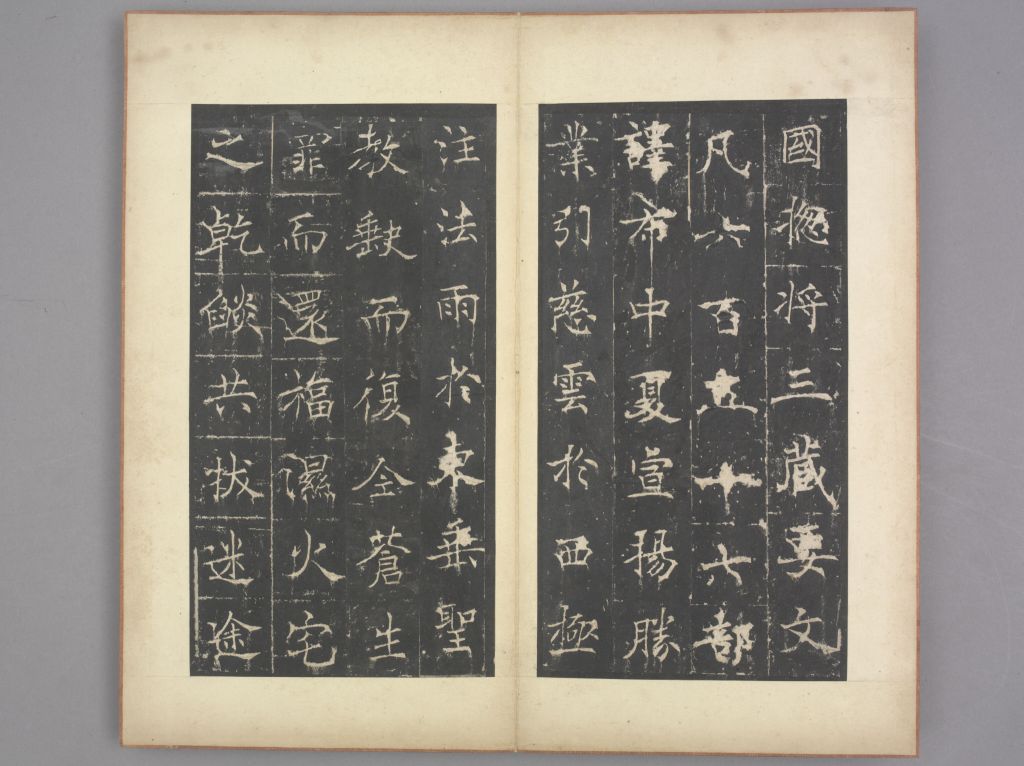 國揔將三藏要文
凡六百五十六部
譯布中夏宣揚勝
業引慈雲於西極
注法雨於東垂聖
教缺而復全蒼生
罪而還福濕火宅
之乾焰共拔迷途